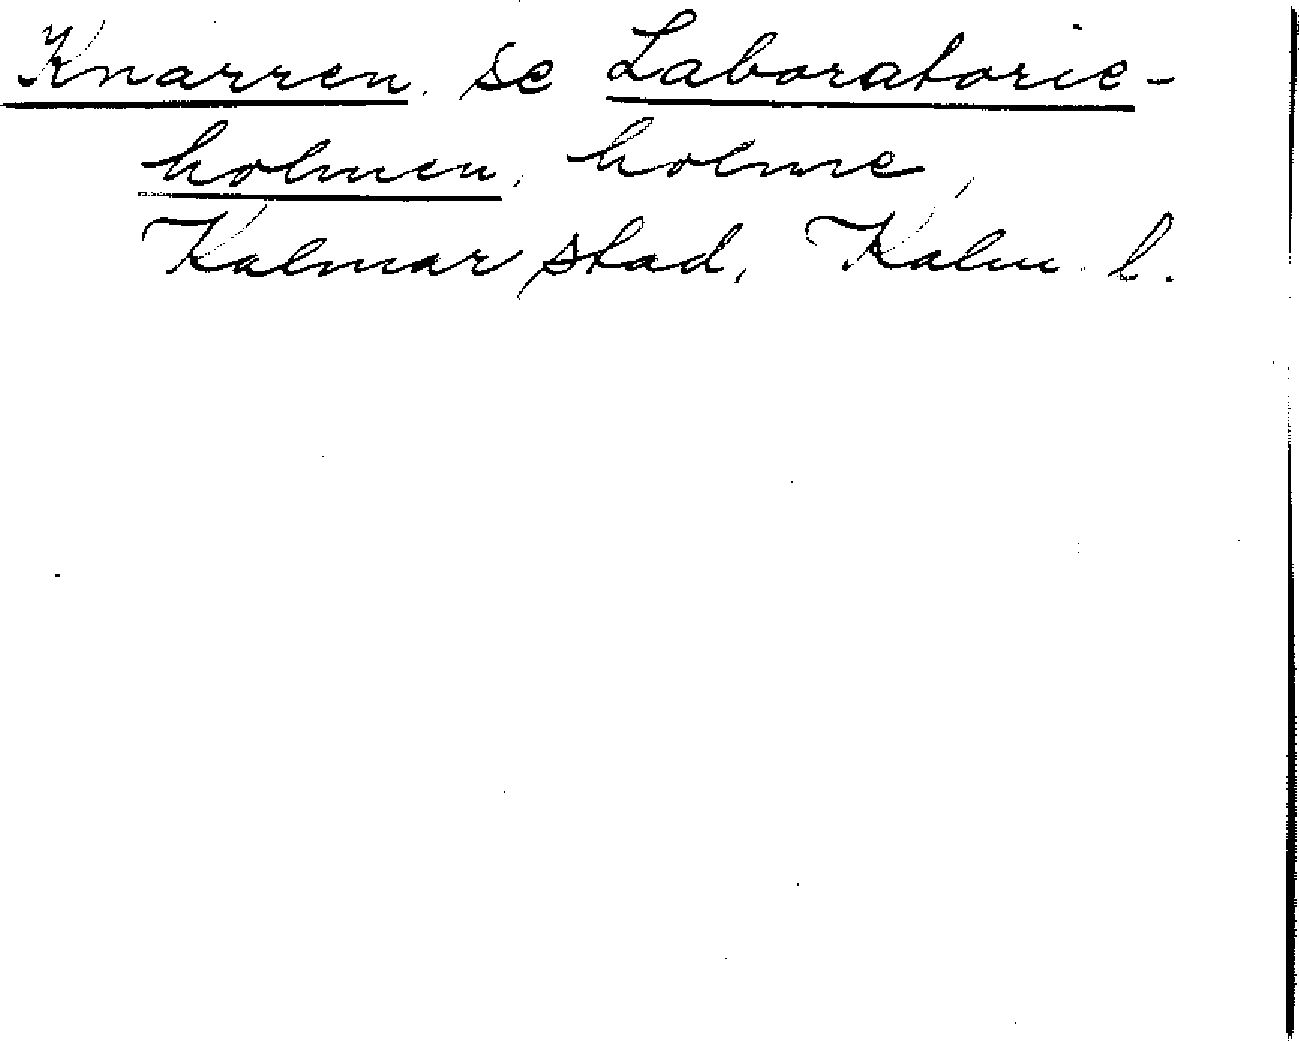 Knarren, se Laboratorie-
holmen, holme,
Kalmar stad, Kalm. l.